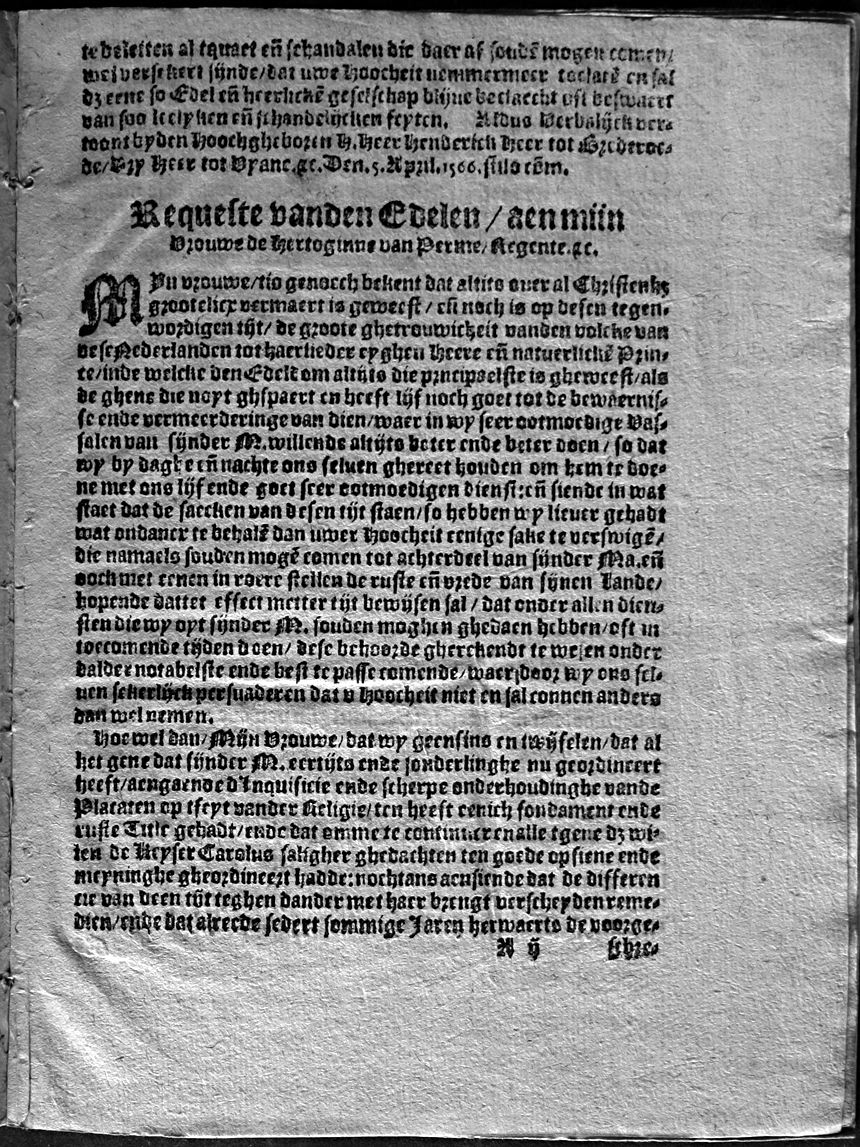 te beletten al tquaet en̄ schandalen die daer af soudē mogen comen/
wel versekert sijnde/dat uwe Hoocheit nemmermeer toelatē en sal
dz eene so Edel en̄ heerlickē geselschap blijue beclaecht oft beswaert
van soo leelycken en̄ schandelijcken feyten. Aldus Verbalijck ver-
toont byden Hoochgheboren H. Heer Henderick Heer tot Brederoe-
de/Vry Heer tot Vyane.⁊c. Den. 5. April. 1566. stilo cōm.
Requeste vanden Edelen / aen mijn
Vrouwe de Hertoginne van Perme/ Regente.⁊c.
MYn vrouwe/tis genoech bekent dat altits ouer al Christenhz
grootelicx vermaert is geweest / en̄ noch is op desen tegen-
wordigen tijt/ de groote ghetrouwicheit vanden volcke van
dese Nederlanden tot haerlieder eyghen Heere en̄ natuerlickē Prin-
te/inde welcke den Edelē om altijts die principaelste is gheweest/als
de ghene die noyt ghspaert en heeft lijf noch goet tot de bewaernis-
se ende vermeerderinge van dien/waer in wy seer ootmoedige Vas-
salen van sijnder M. willende altijts beter ende beter doen / so dat
wy by daghe en̄ nachte ons seluen ghereet houden om hem te doe-
ne met ons lijf ende goet seer ootmoedigen dienst: en̄ siende in wat
staet dat de saecken van desen tijt staen/so hebben wy lieuer gehadt
wat ondancr te behalē dan uwer Hoocheit eenige sake te verswigē/
die namaels souden mogē comen tot achterdeel van sijnder Ma. en̄
oock met eenen in roere stellen de ruste en̄ vrede van sijnen Lande/
hopende dattet effect metter tijt bewijsen sal / dat onder allen dien-
sten die wy oyt sijnder M. souden moghen ghedaen hebben/oft in
toecomende tijden doen/ dese behoorde gherekendt te wesen onder
dalder notabelste ende best te passe comende/waer door wy ons sel-
uen sekerlijck persuaderen dat v Hoocheit niet en sal connen anders
dan wel nemen.
Hoe wel dan/Mijn Vrouwe/dat wy geensins en twijfelen/dat al
het gene dat sijnder M. eertijts ende sonderlinghe nu geordineert
heeft/aengaende d'Inquisicie ende scherpe onderhoudinghe vande
Placaten op tfeyt vander Religie/ten heeft eenich fondament ende
ruste Title gehadt/ende dat omme te continueren alle tgene dz wi-
len de Keyser Carolus saligher ghedachten ten goede opsiene ende
meyninghe gheordineert hadde: nochtans aensiende dat de differen
tie van deen tijt teghen dander met haer brengt verscheyden reme-
dien/ende dat alreede sedert sommige Jaren herwaerts de voorge-
A ij schre-